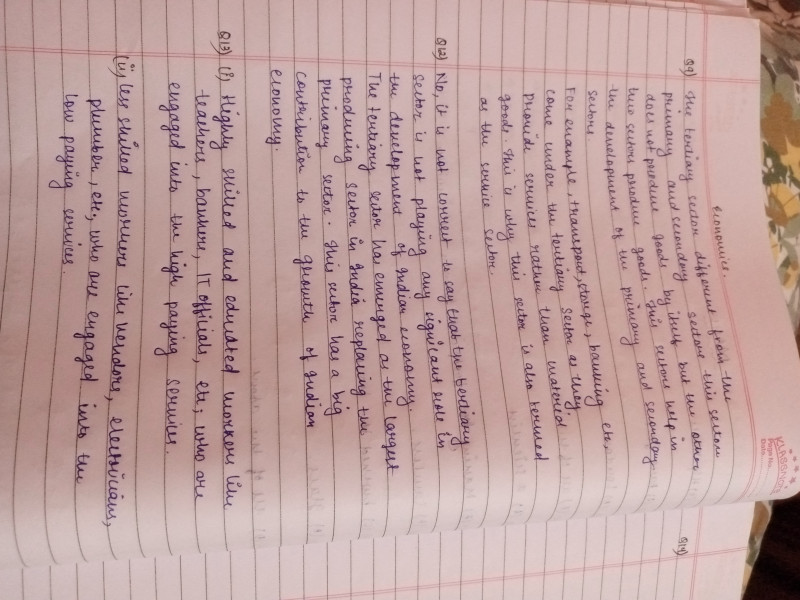 KLASSMATE
Date
Page No.
economics.
Q9) The tertiary sector different from the
primary and secondary sectors this sector
does not produce goods by itself but the other
two sectors produce goods. This sectors help in
the development of the primary and secondary
sectors.
For example, transport, storage, banking etc,
come under the tertiary sector as they
provide services rather than material
goods. This is why this sector is also termed
as the service sector.
Q12) No, it is not correct to say that the tertiary
sector is not playing any significant role in
the development of Indian economy.
The tertiary sector has emerged as the largest
producing sector in India replacing the
primary sector. This sector has a big
contribution to the growth of Indian
economy.
Q13) (i) Highly skilled and educated workers like
teachers, bankers, IT officials, etc; who are
engaged into the high paying services.
(ii) less skilled workers like vendors, electricians,
plumber, etc, who are engaged into the
low paying services.
Q14)